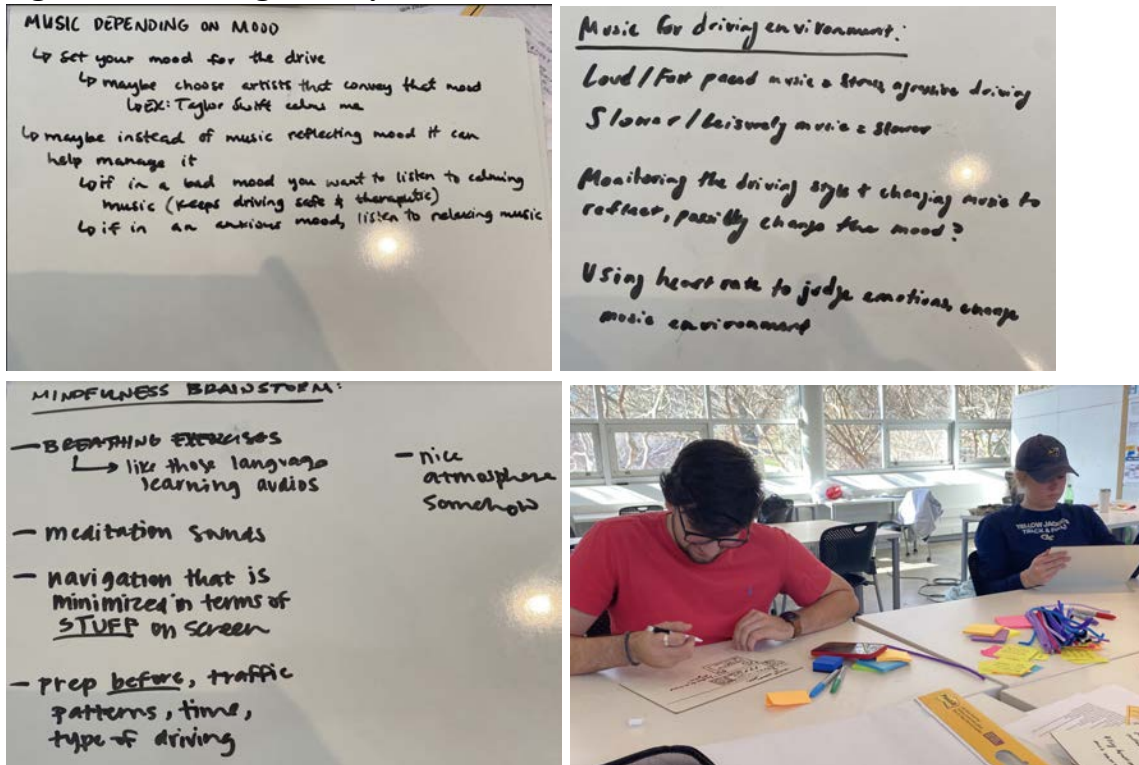 MUSIC DEPENDING ON MOOD
↳ set your mood for the drive
↳ maybe choose artists that convey that mood
↳ EX: Taylor Swift calms me
↳ maybe instead of music reflecting mood it can
help manage it
↳ if in a bad mood you want to listen to calming
music (keeps driving safe & therapeutic)
↳ if in an anxious mood, listen to relaxing music
Music for driving environment:
Loud/Fast paced music = driving
Slower/Leisurely music = slower
Monitoring the driving style + changing music to
reflect, possibly change the mood?
Using heart rate to judge emotions, change
music environment
MINDFULNESS BRAINSTORM:
— BREATHING EXERCISES
↳ like those language
learning audios
— meditation sounds
— navigation that is
minimized in terms of
STUFF on screen
— prep before, traffic
patterns, time,
type of driving
— nice
atmosphere
somehow
YELLOW JACKETS
TRACK & FIELD